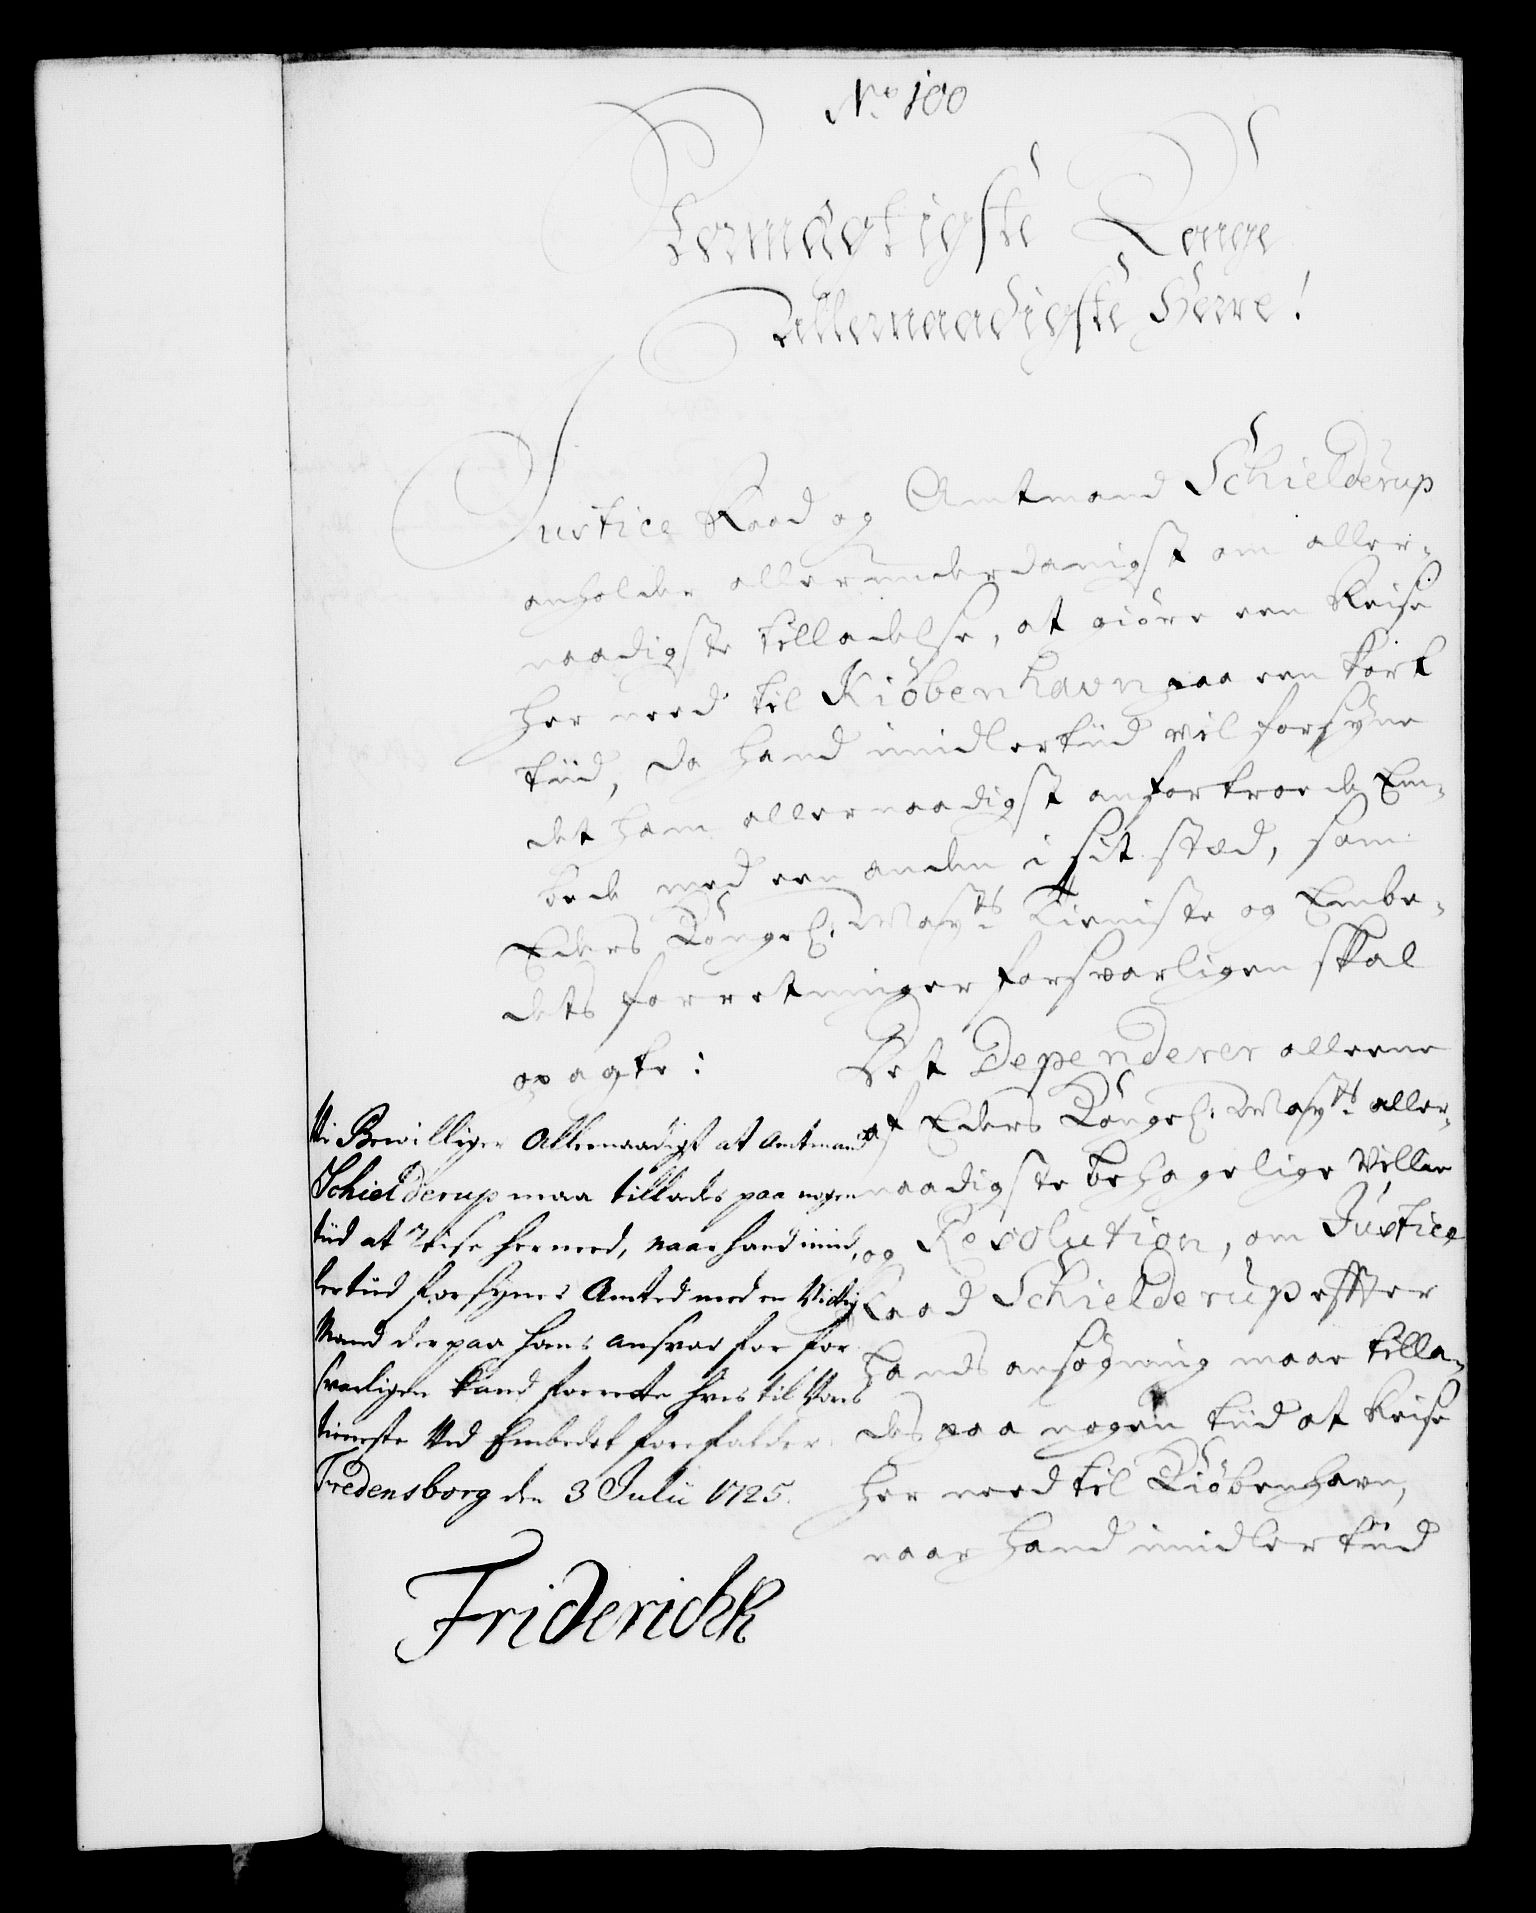 No 100
Stormægtigste Konge
Allernaadigste Herre!
Justice Raad og Amtmand Schielderup
anholder allerunderdanigst om aller-
naadigste tilladelse, at giöre een Reise
her need til Kiöbenhavn paa een kort
tiid, da hand imidlertiid vil forsÿne
det ham allernaadigst anfortroede Em-
bede med een anden i sit stæd, som
Eders Kongel: Mayts Tieniste og Embe-
dets forretninger forsvarligen skal
opagte:
Det Dependerer alleene
af Eders Kongel: Mayts aller-
naadigste behagelige Villie
og Resolution, om Justice
Raad Schielderup effter
hands ansögning maae tilla-
des paa nogen tiid at Reise
her need til Kiöbenhavn,
naar hand imidlertiid
Vi Bewilliger Allernaadigst at Amtmand
Schielderup maa tillades paa nogen
tiid at Reise her need, naar hand imid-
lertiid forsyner Amted med en Vittig
Mand der paa hans ansvar for for-
svarligen kand forrette hves til Vores
tieneste Ved Embedet forefalder.
Fredensborg den 3 Julii 1725.
Friderich R